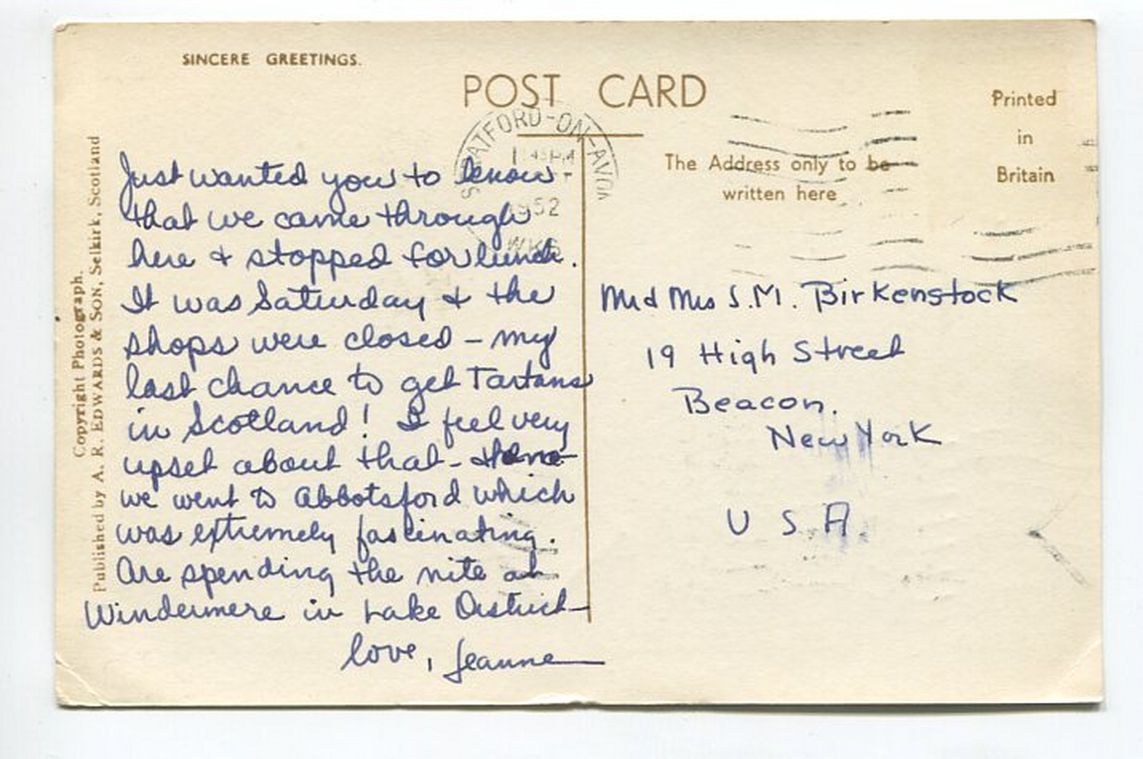 SINCERE GREETINGS.
POST CARD
Printed
in
Britain
The Address only to be
written here
STRATFORD-ON-AVON
45 PM
1952
WKS
Copyright Photograph.
Published by A. R. EDWARDS & SON, Selkirk, Scotland
Just wanted you to know
that we came through
here & stopped for lunch.
It was Saturday & the
shops were closed - my
last chance to get Tartans
in Scotland! I feel very
upset about that -
we went to Abbotsford which
was extremely fascinating.
Are spending the nite at
Windermere in Lake District
love, Jeanne
Mr & Mrs S.M. Birkenstock
19 High Street
Beacon.
New York
U S A